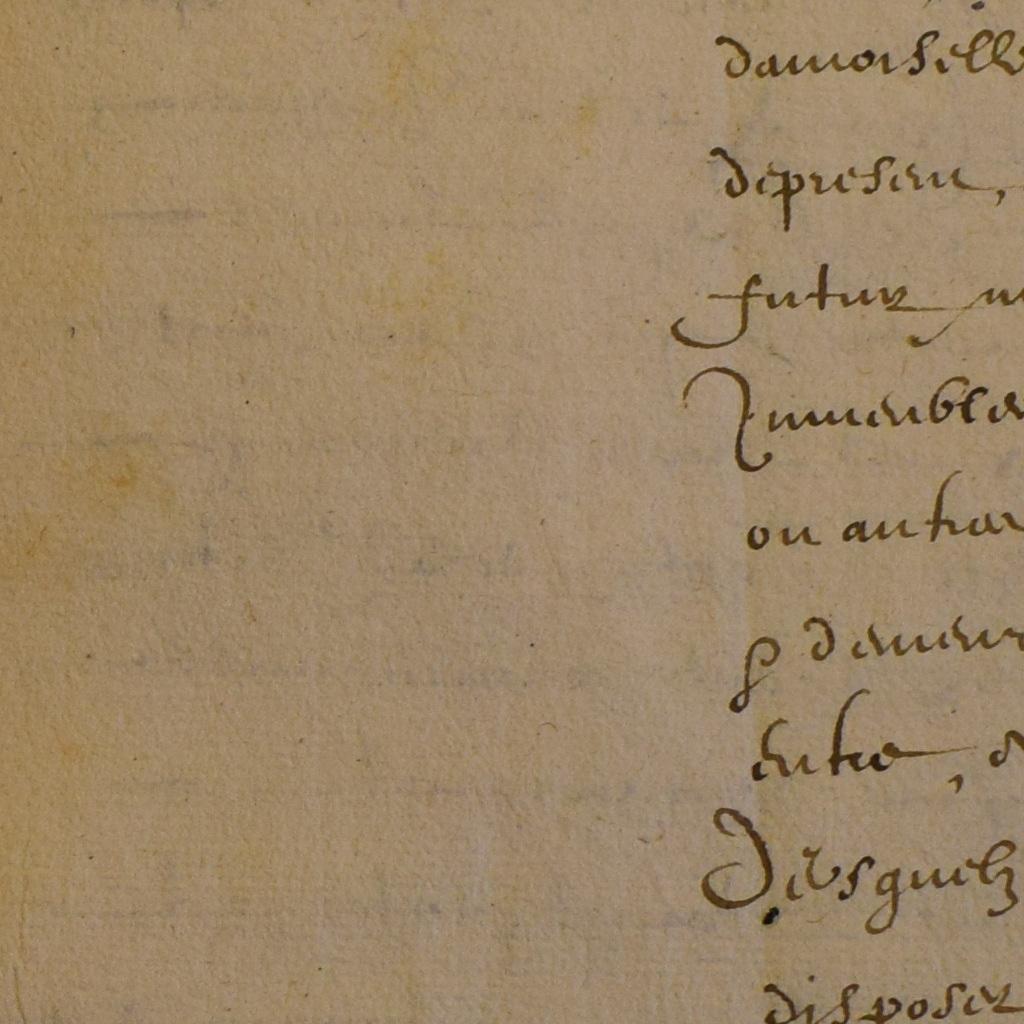 damoiselle
depresent,
futur
Immeubles
ou autres
p demeur
entre,
Desquelz
disposer